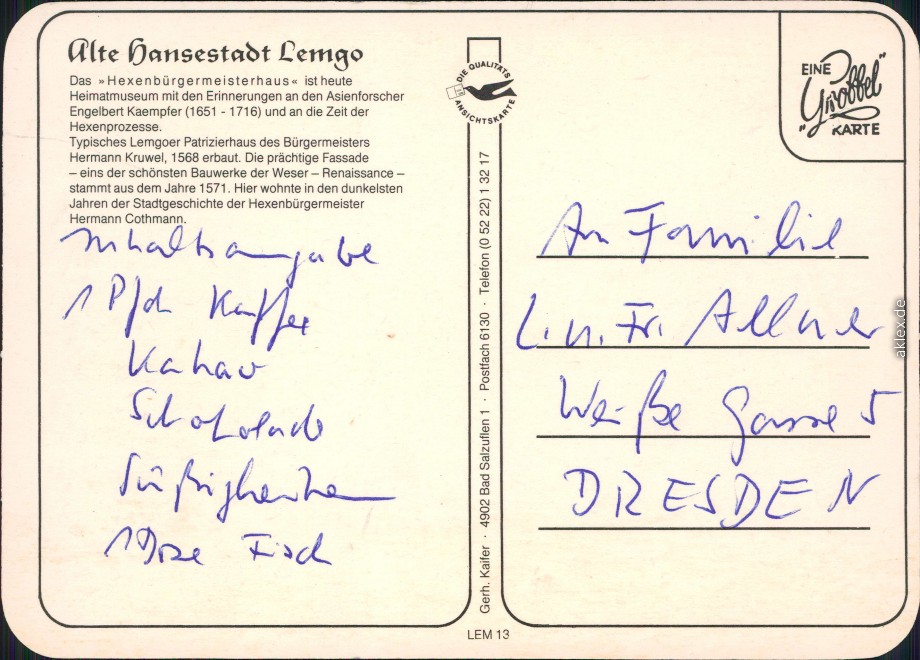 Alte Hansestadt Lemgo
Das »Hexenbürgermeisterhaus« ist heute
Heimatmuseum mit den Erinnerungen an den Asienforscher
Engelbert Kaempfer (1651 - 1716) und an die Zeit der
Hexenprozesse.
Typisches Lemgoer Patrizierhaus des Bürgermeisters
Hermann Kruwel, 1568 erbaut. Die prächtige Fassade
– eins der schönsten Bauwerke der Weser – Renaissance –
stammt aus dem Jahre 1571. Hier wohnte in den dunkelsten
Jahren der Stadtgeschichte der Hexenbürgermeister
Hermann Cothmann.
Inhaltsangabe
1 Pfd Kaffee
Kakao
Schokolade
Süßigkeiten
1 Dose Fisch
DIE QUALITÄTS
ANSICHTSKARTE
Gerh. Kaifer · 4902 Bad Salzuflen 1 · Postfach 6130 · Telefon (0 52 22) 1 32 17
EINE
"Grobbel"
KARTE
An Familie
L. u. Fr. Allner
Weiße Gasse 5
DRESDEN
LEM 13
aklex.de